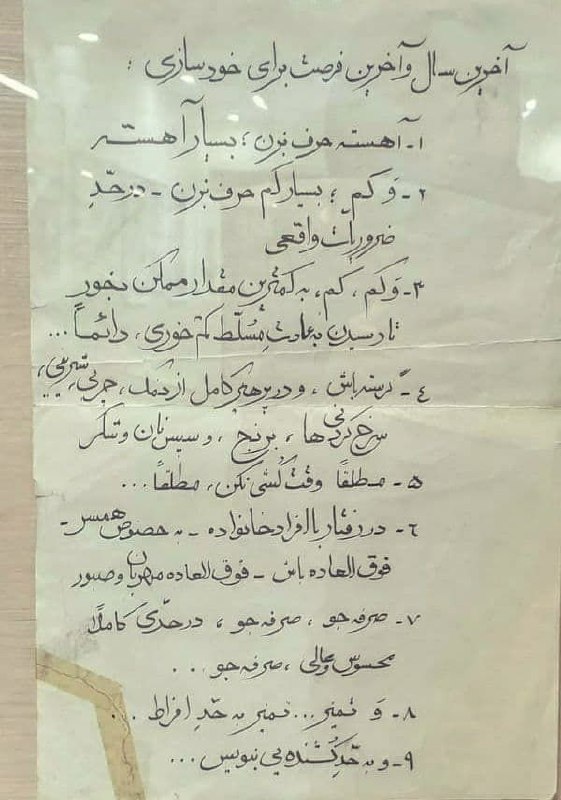 آخرین سال و آخرین فرصت برای خودسازی :
۱- آهسته حرف بزن ؛ بسیار آهسته
۲- وَ کم ؛ بسیار کم حرف بزن - در حدِّ
ضروریات واقعی
۳- وَ کم ، کم ، به کمترین مقدار ممکن بخور
تا رسیدن به عادتِ مُسلّطِ کم خوری، دائماً...
٤- گرسنه باش ، و در پرهیز کامل از نمک ، چربی، شیرینی،
سرخ کردنی ها ، برنج ، و سپس نان و شکر
۵- مطلقاً وقت کُشی نکن، مطلقاً...
٦- در رفتار با افراد خانواده - به خصوص همسر -
فوق العاده باش - فوق العاده مهربان و صبور
۷- صرفه جو ، صرفه جو ، در حدّی کاملاً
محسوس و عالی ، صرفه جو ...
۸- وَ تمیز... تمیز به حدِ افراط ...
۹- و به حدِّ کُشنده یی بنویس ...